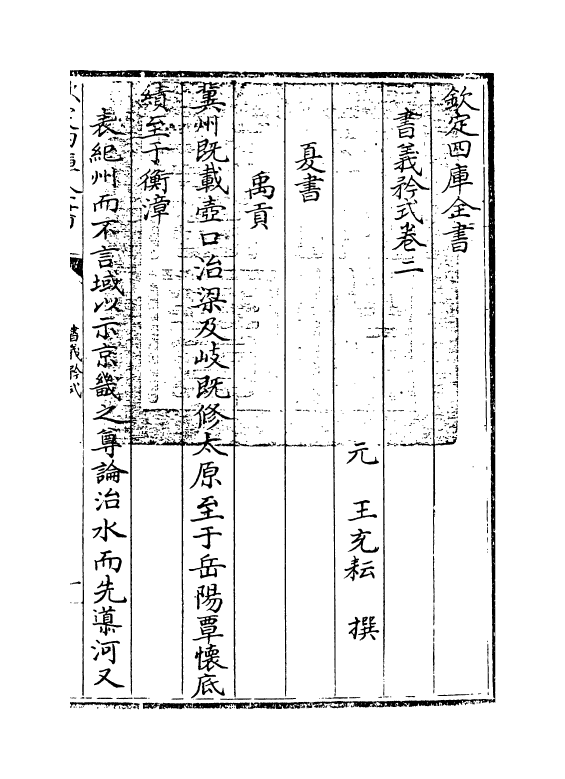 欽定四庫全書
書義矜式卷二
元 王充耘 撰
夏書
禹貢
冀州既載壺口治梁及岐既修太原至于岳陽覃懷底
績至于衡漳
表紀州而不言域以示京畿之尊論治水而先𨗳河又
書義矜式
一